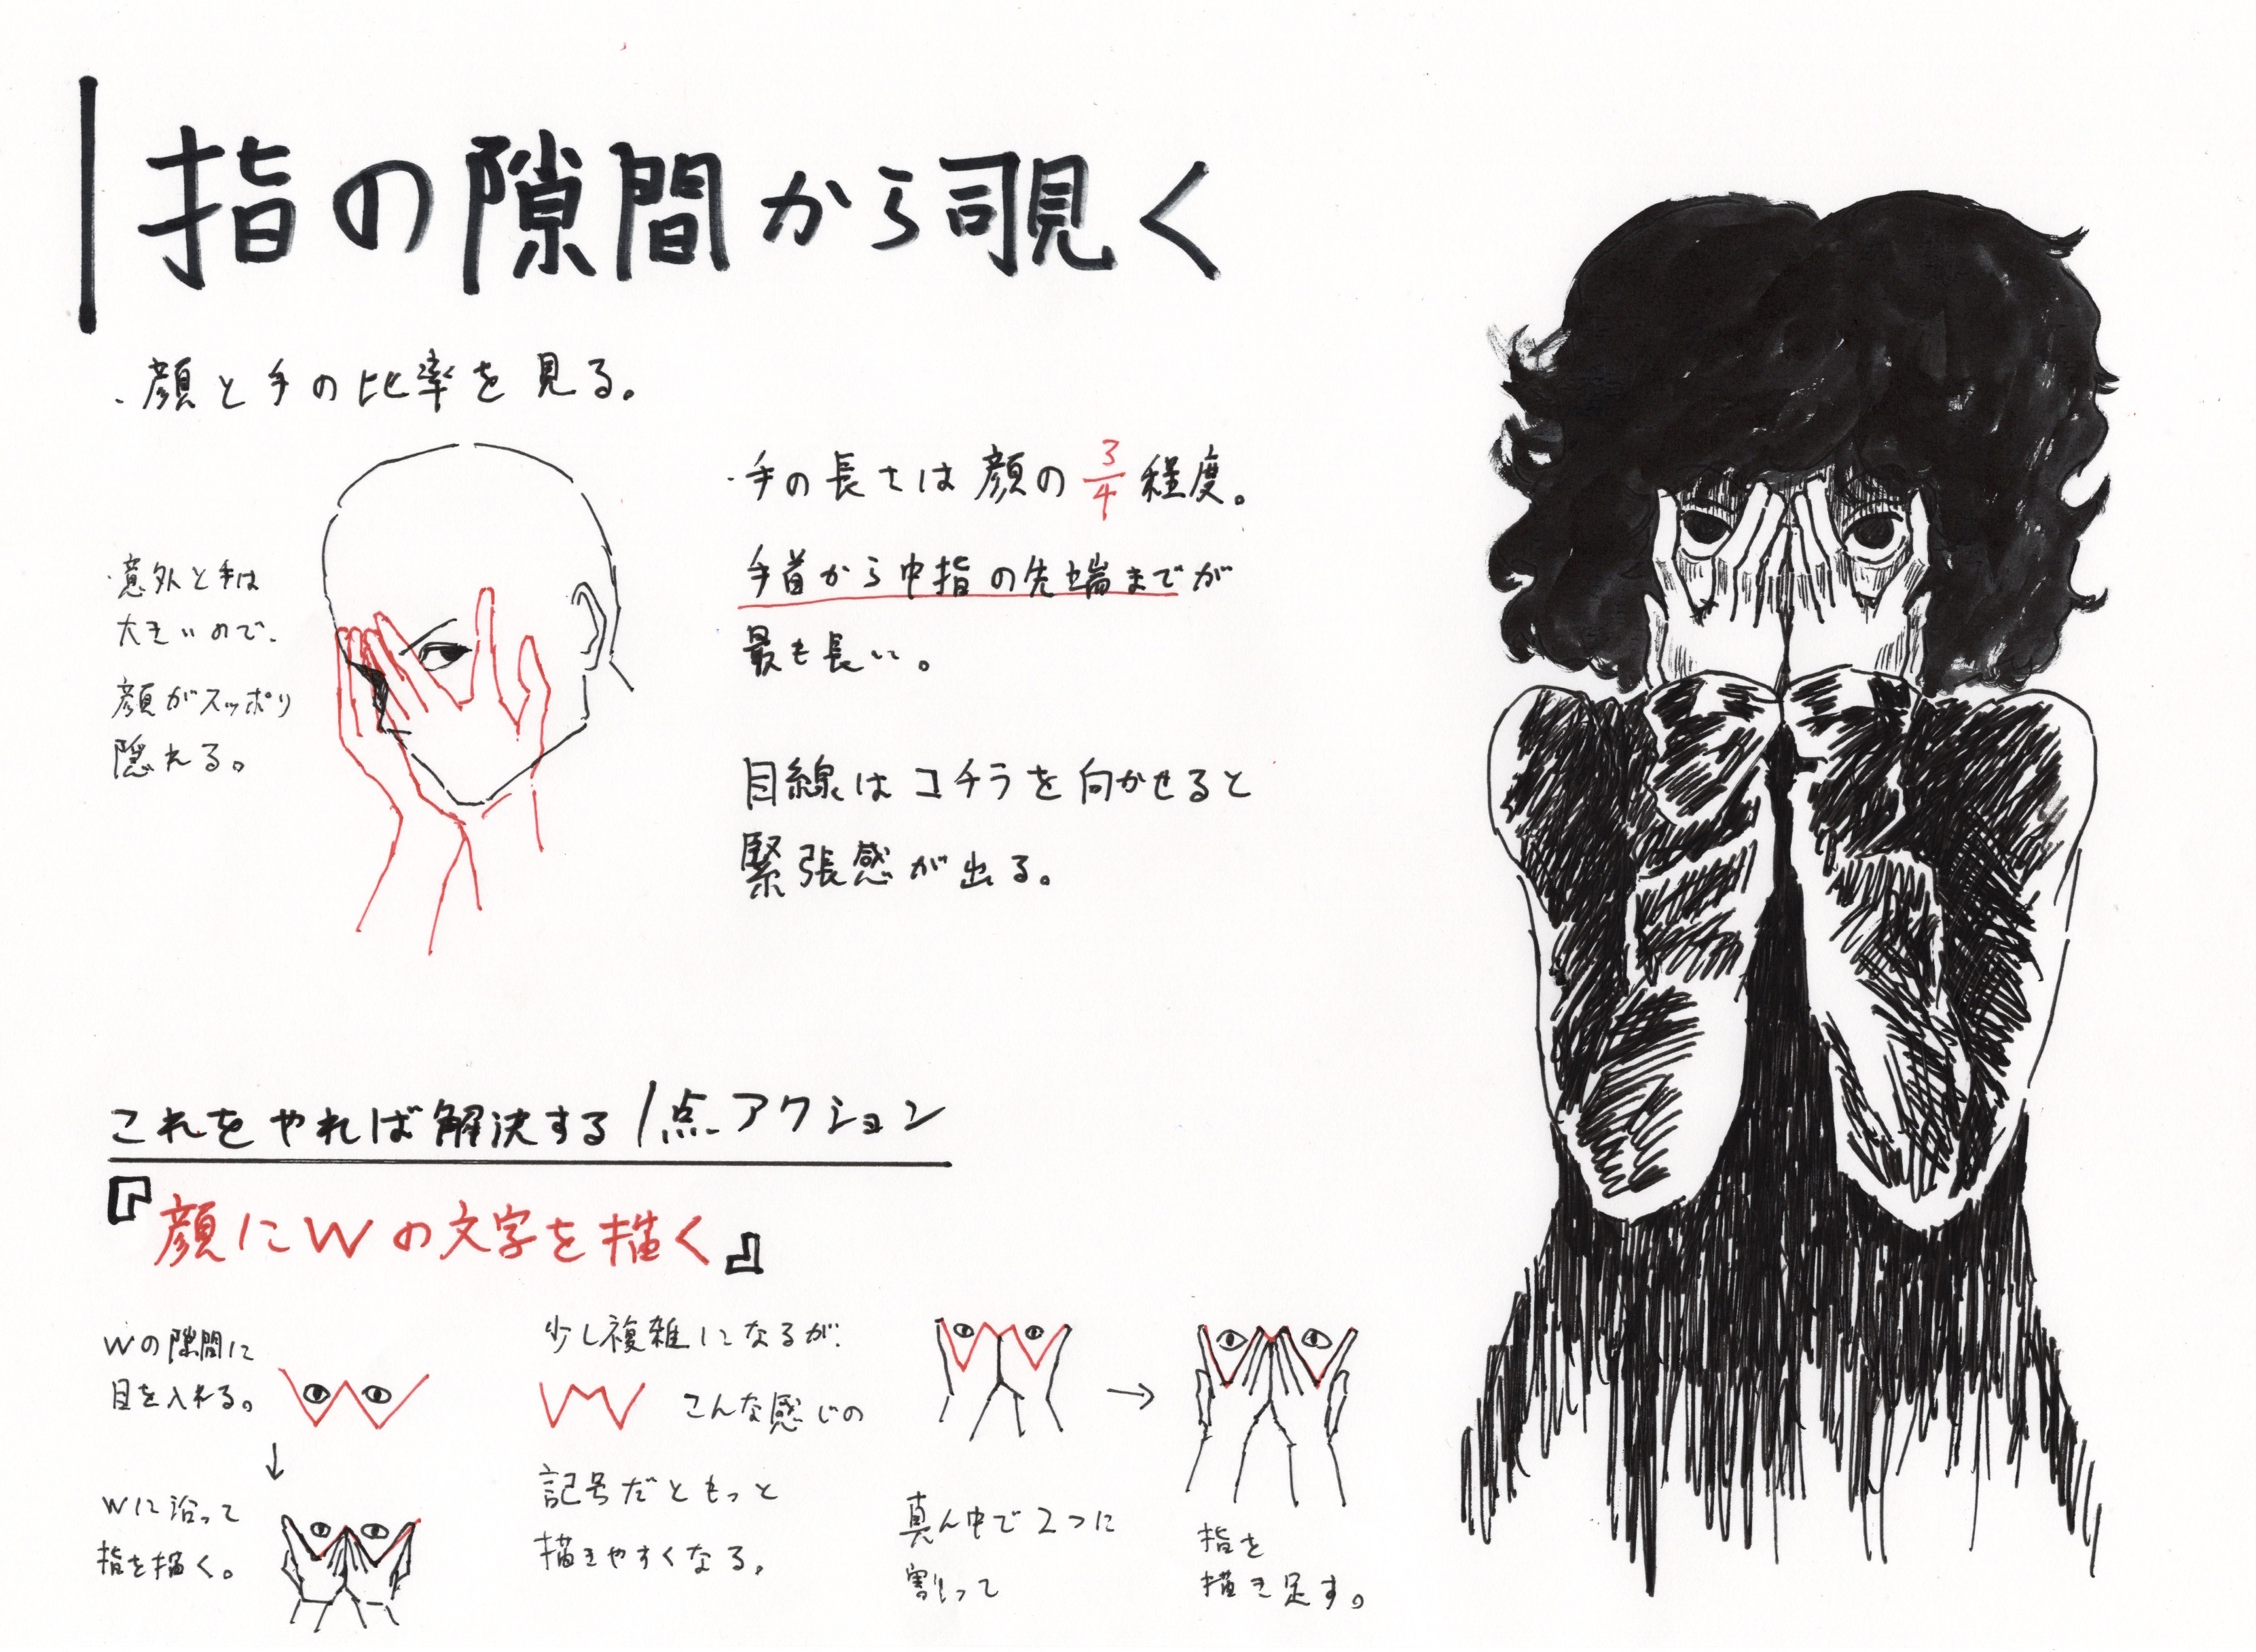 指の隙間から覗く
・顔と手の比率を見る。
・意外と手は
大きいので、
顔がスッポリ
隠れる。
・手の長さは顔の3/4程度。
手首から中指の先端までが
最も長い。
目線はコチラを向かせると
緊張感が出る。
これをやれば解決する1点アクション
『顔にWの文字を描く』
Wの隙間に
目を入れる。
↓
Wに沿って
指を描く。
少し複雑になるが、
こんな感じの
記号だともっと
描きやすくなる。
真ん中で2つに
割って
→
指を
描き足す。